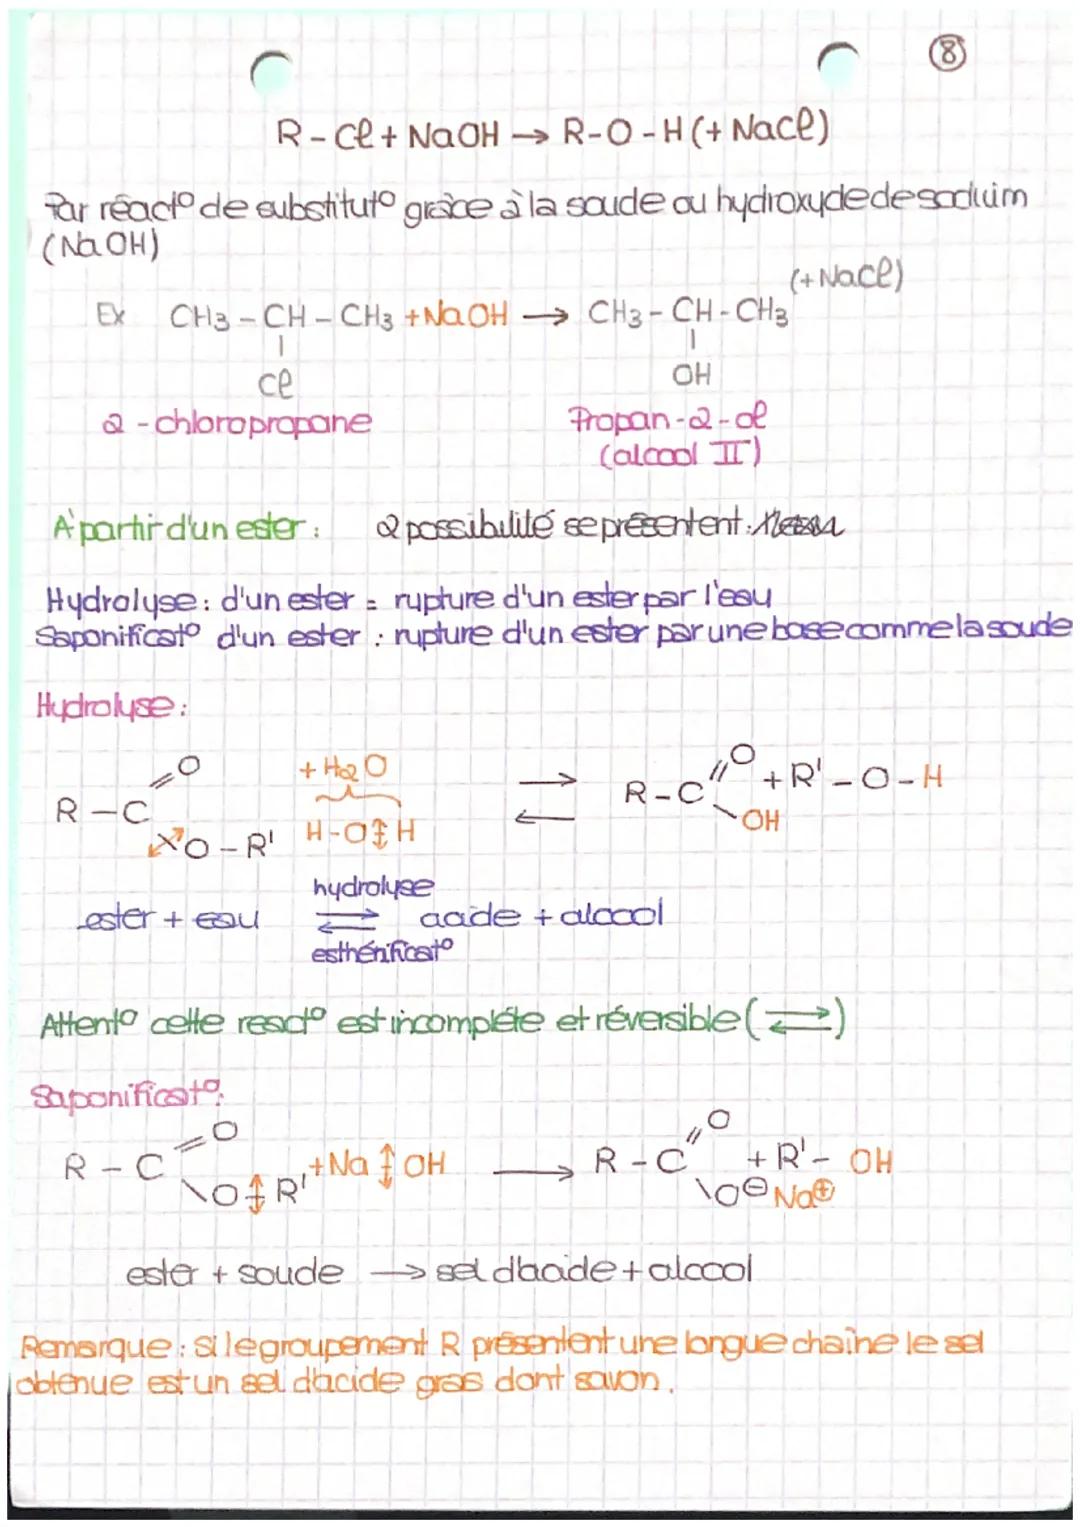 ⑧
R - Cl + NaOH → R-O-H (+ NaCl)
Par réact° de substitut° grâce à la soude ou hydroxyde de soduim
(NaOH)
(+ NaCl)
Ex CH3 - CH - CH3 + NaOH → CH3 - CH - CH3
Cl OH
2 - chloropropane Propan-2-ol
(alcool II)
A partir d'un ester : 2 possibilité se présentent :
Hydrolyse : d'un ester = rupture d'un ester par l'eau
Saponificat° d'un ester : rupture d'un ester par une base comme la soude
Hydrolyse :
O + H2O ⇌ O
R - C R - C + R' - O - H
O - R' H - O H OH
hydrolyse
ester + eau ⇌ acide + alcool
esthérificat°
Attent° cette react° est incompléte et réversible (⇌)
Saponificat° :
O O
R - C + Na OH → R - C + R' - OH
O R' O⊖ Na⊕
ester + soude → sel d'acide + alcool
Remarque : si le groupement R présentent une longue chaîne le sel
obtenue est un sel d'acide gras dont savon.